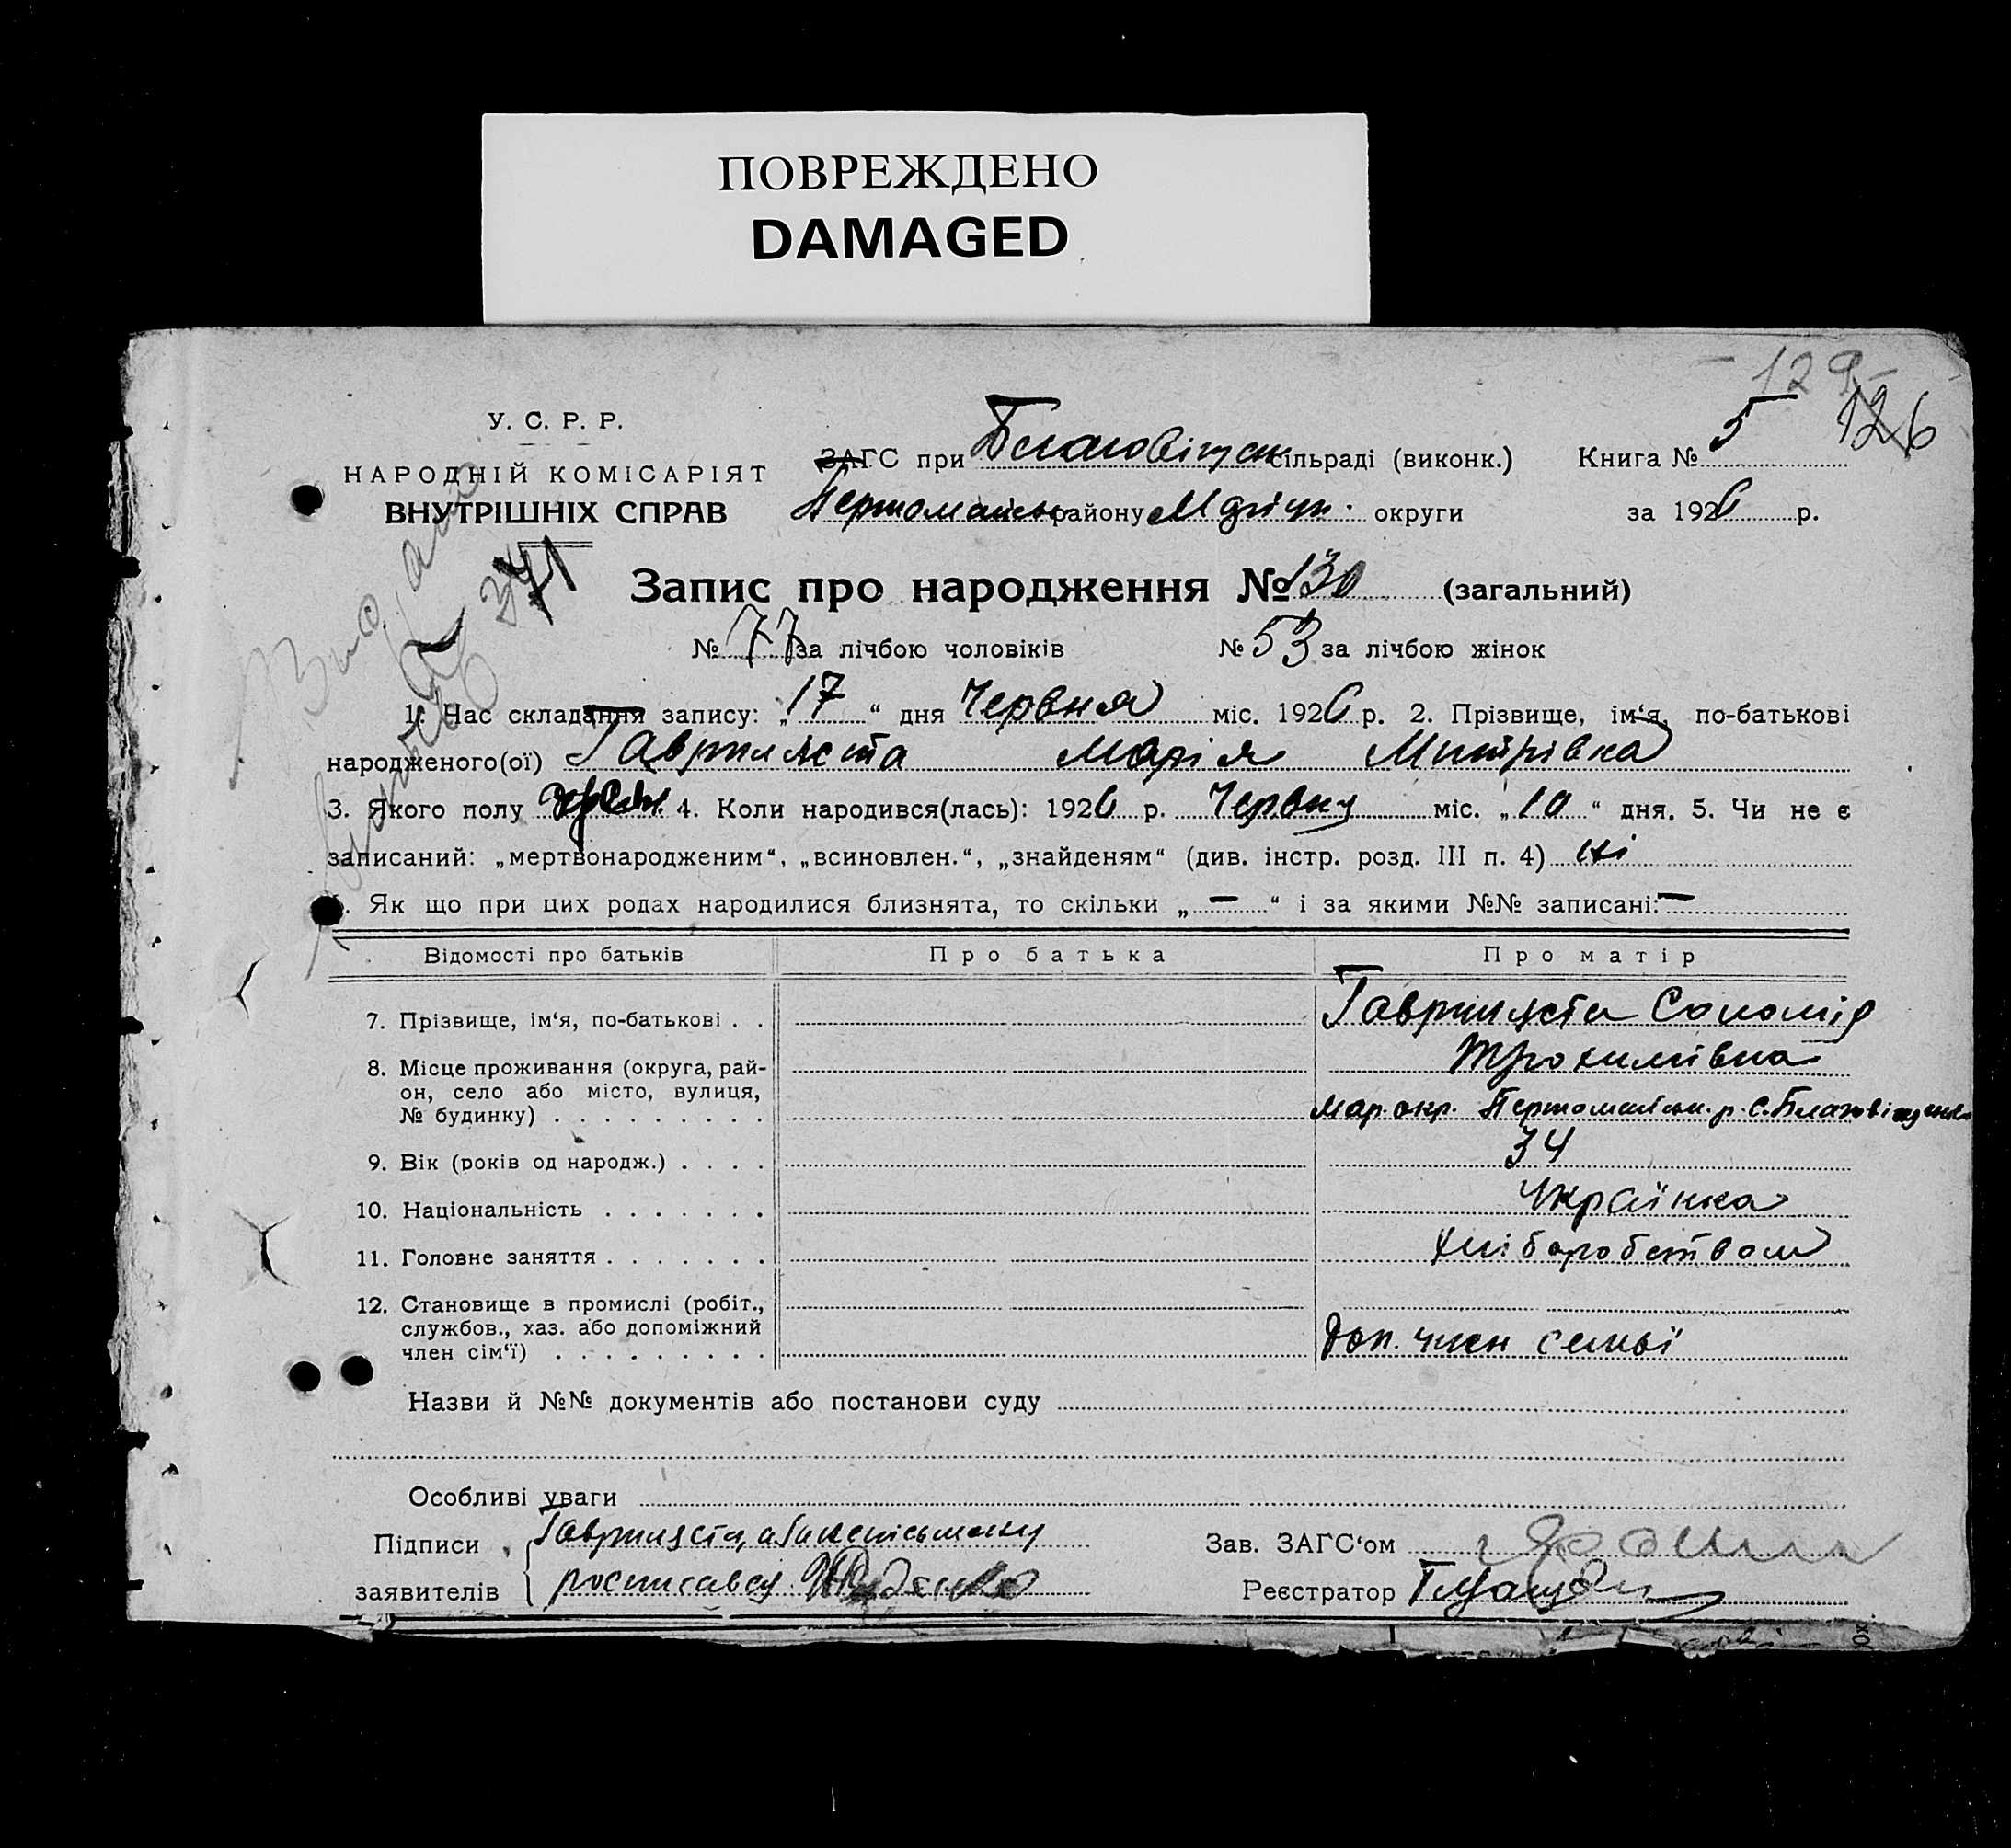 ПОВРЕЖДЕНО
DAMAGED
129
126
У. С. Р. Р.
НАРОДНІЙ КОМІСАРІЯТ
ВНУТРІШНІХ СПРАВ
ЗАГС при Благовіщен сільраді (виконк.) Книга № 5
Першомайськ району округи за 1926 р.
371
Запис про народження № 130 (загальний)
№ 77 за лічбою чоловіків № 53 за лічбою жінок
1. Час складання запису: „17“ дня Червня міс. 1926 р. 2. Прізвище, ім‘я, по-батькові
народженого(ої) Гаврилюста Марія Митрівна
3. Якого полу 4. Коли народився(лась): 1926 р. Червня міс. „10“ дня. 5. Чи не є
записаний: „мертвонародженим“, „всиновлен.“, „знайденям“ (див. інстр. розд. III п. 4) ні
Як що при цих родах народилися близнята, то скільки „—“ і за якими №№ записані: —
Відомості про батьків Про батька Про матір
7. Прізвище, ім‘я, по-батькові . . Соломія
Трохимівна
8. Місце проживання (округа, рай-
он, село або місто, вулиця,
№ будинку) . . . . . . . . . Мар. окр. Першомайськ. р. с. Благовіщенка
9. Вік (років од народж.) . . . . 34
10. Національність . . . . . . . Українка
11. Головне заняття . . . . . . . хліборобством
12. Становище в промислі (робіт.,
службов., хаз. або допоміжний
член сім‘ї) . . . . . . . . . Доп. член семьї
Назви й №№ документів або постанови суду
Особливі уваги
Підписи
заявителів росписався
Зав. ЗАГС‘ом
Реєстратор